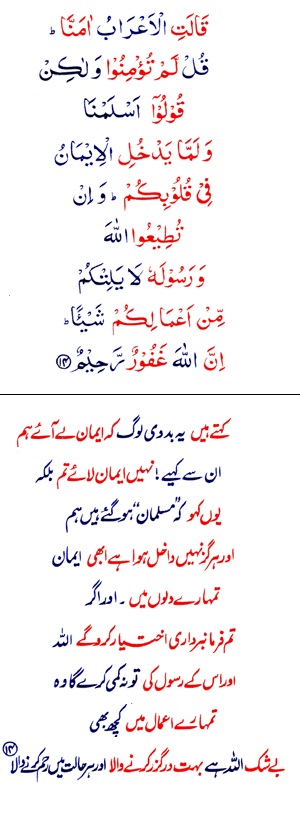 قَالَتِ الْاَعْرَابُ اٰمَنَّا ؕ
قُلْ لَّمْ تُؤْمِنُوْا وَلٰكِنْ
قُوْلُوْۤا اَسْلَمْنَا
وَلَمَّا يَدْخُلِ الْاِيْمَانُ
فِيْ قُلُوْبِكُمْ ؕ وَ اِنْ
تُطِيْعُوا اللّٰهَ
وَ رَسُوْلَهٗ لَا يَلِتْكُمْ
مِّنْ اَعْمَالِكُمْ شَيْـًٔا ؕ
اِنَّ اللّٰهَ غَفُوْرٌ رَّحِيْمٌ ۝۱۴
کہتے ہیں یہ بدوی لوگ کہ ایمان لے آئے ہم
ان سے کہیے! نہیں ایمان لائے تم بلکہ
یوں کہو کہ "مسلمان" ہو گئے ہیں ہم
اور ہرگز نہیں داخل ہوا ہے ابھی ایمان
تمہارے دلوں میں ۔ اور اگر
تم فرمانبرداری اختیار کرو گے اللہ
اور اس کے رسول کی تو نہ کمی کرے گا وہ
تمہارے اعمال میں کچھ بھی
بے شک اللہ ہے بہت درگزر کرنے والا اور ہر حالت میں رحم کرنے والا ۝۱۴